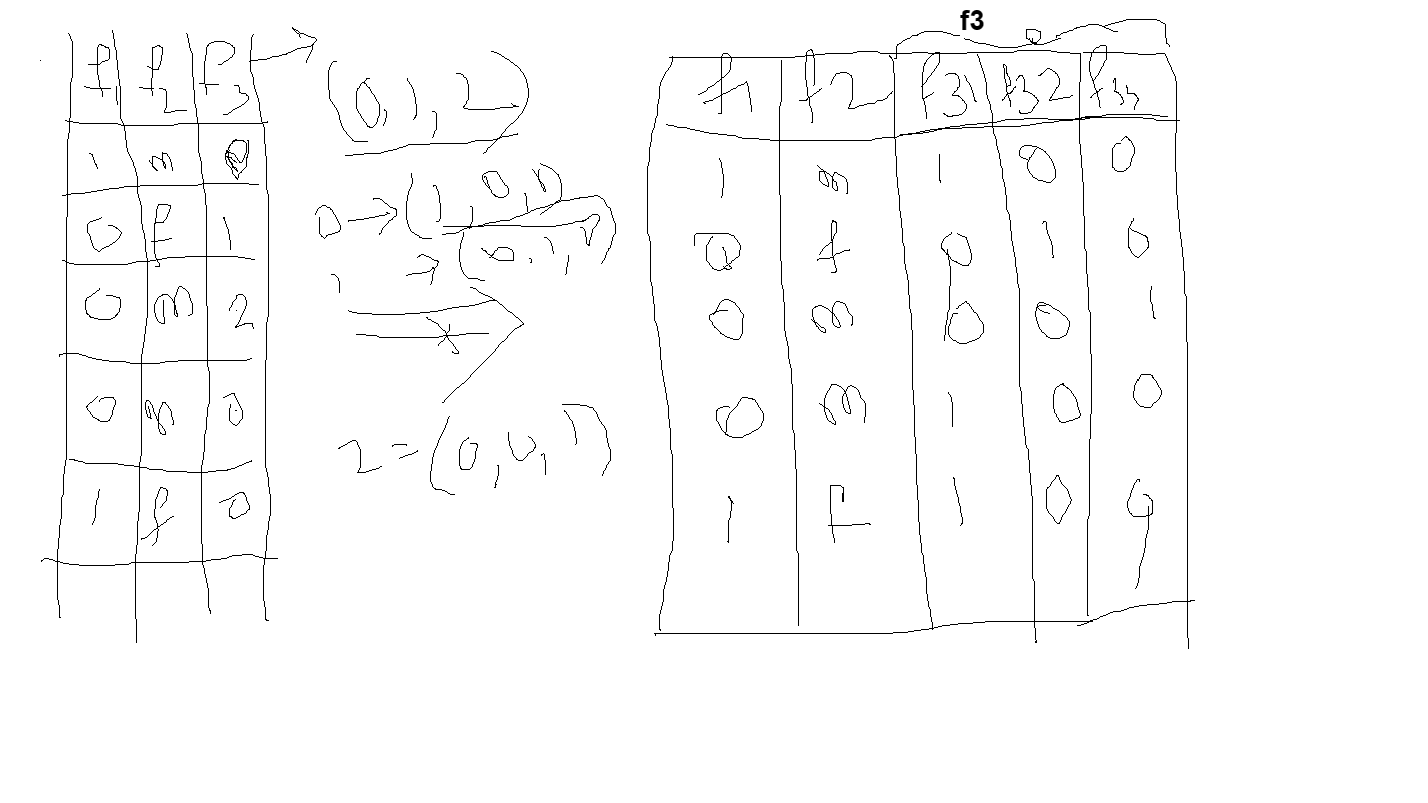 f1 f2 f3
1 m 0
0 f 1
0 m 2
0 m 0
1 f 0
(0, 1, 2)
0 → (1, 0, 0)
1 → (0, 1, 0)
2 = (0, 0, 1)
f3
f1 f2 f31 f32 f33
1 m 1 0 0
0 f 0 1 0
0 m 0 0 1
0 m 1 0 0
1 F 1 0 0